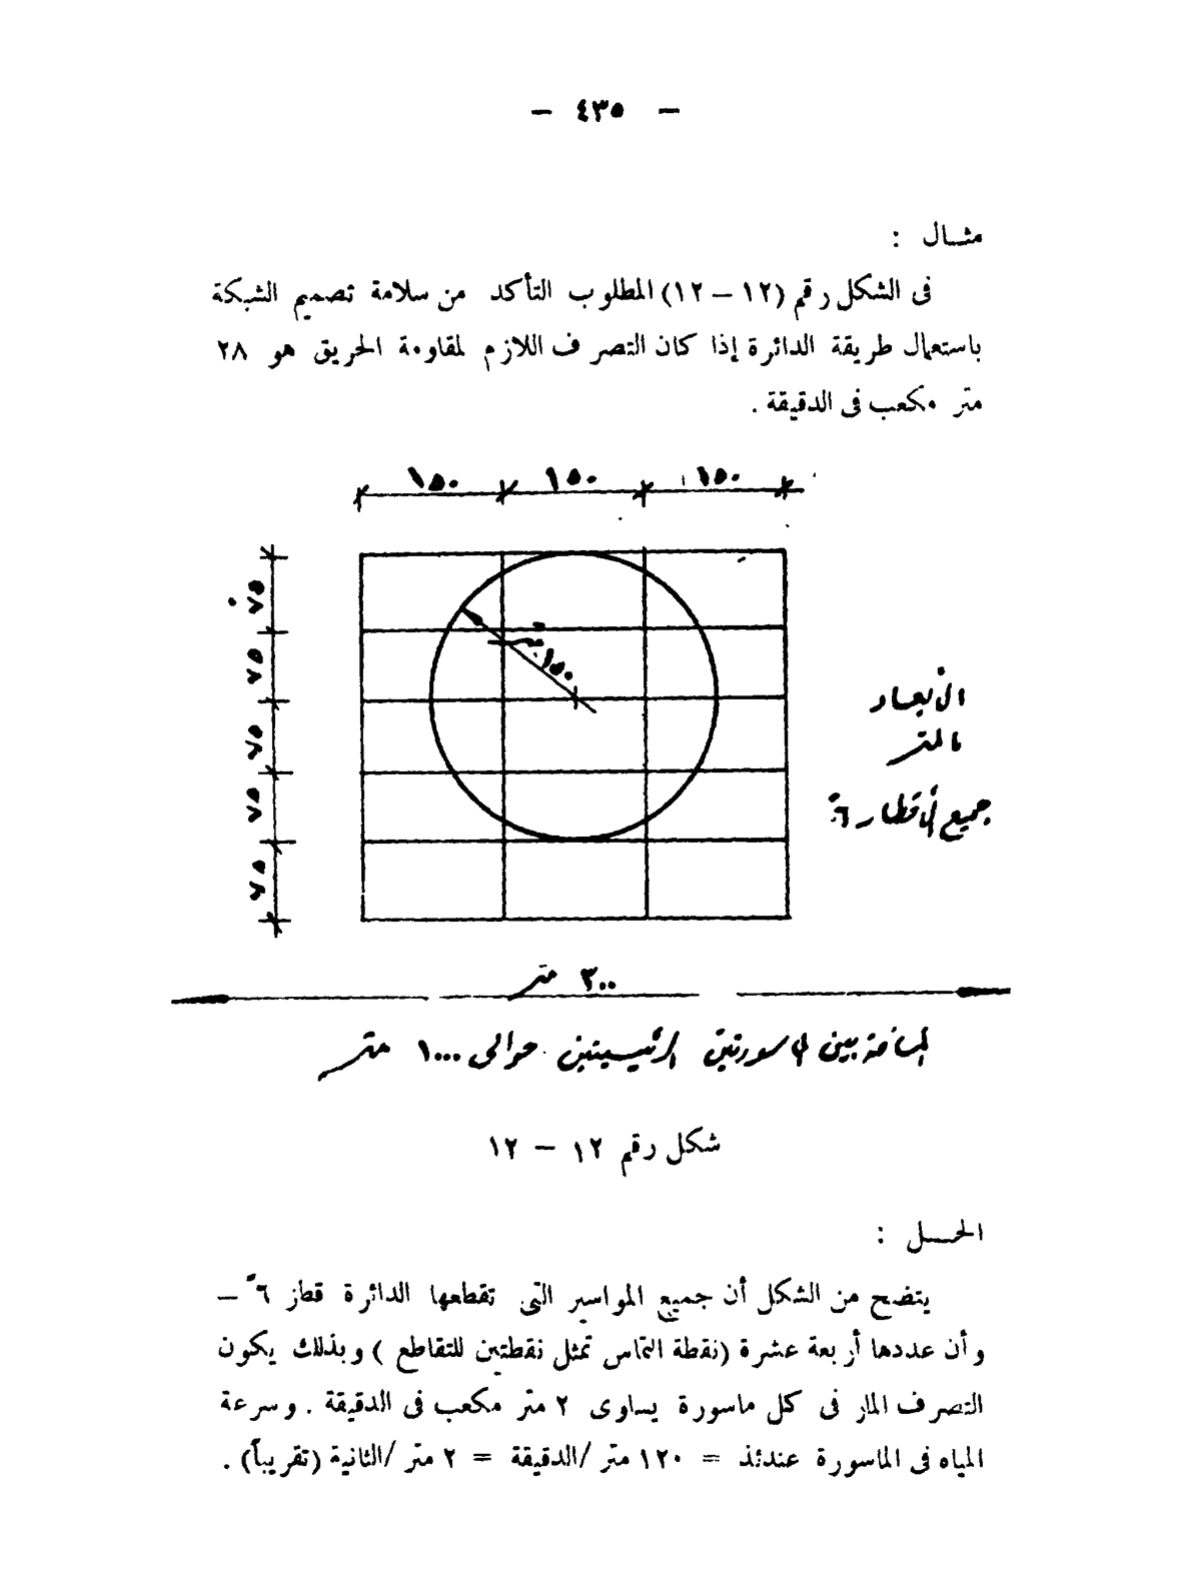 — ٤٣٥ —
مثـال :
فى الشكل رقم (١٢ – ١٢) المطلوب التأكد من سلامة تصميم الشبكة
باستعمال طريقة الدائرة إذا كان التصرف اللازم لمقاومة الحريق هو ٢٨
متر مكعب فى الدقيقة .
١٥٠ ١٥٠ ١٥٠
٧٥
٧٥
٧٥
٧٥
٧٥
١٥٠ متر
الأبعاد
بالمتر
جميع الأقطار ٦"
٣٠٠ متر
المسافة بين الماسورتين الرئيسيتين حوالى ١٠٠٠ متر
شكل رقم ١٢ – ١٢
الحـــل :
يتضح من الشكل أن جميع المواسير التى تقطعها الدائرة قطر ٦" –
وأن عددها أربعة عشرة (نقطة التماس تمثل نقطتين للتقاطع ) وبذلك يكون
التصرف المار فى كل ماسورة يساوى ٢ متر مكعب فى الدقيقة . وسرعة
المياه فى الماسورة عندئذ = ١٢٠ متر /الدقيقة = ٢ متر /الثانية (تقريباً) .